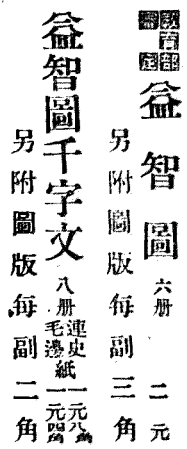 教育部審定
益智圖 六册 二元
另附圖版每副三角
益智圖千字文 八册 連史紙一元八角 毛邊紙一元四角
另附圖版每副二角